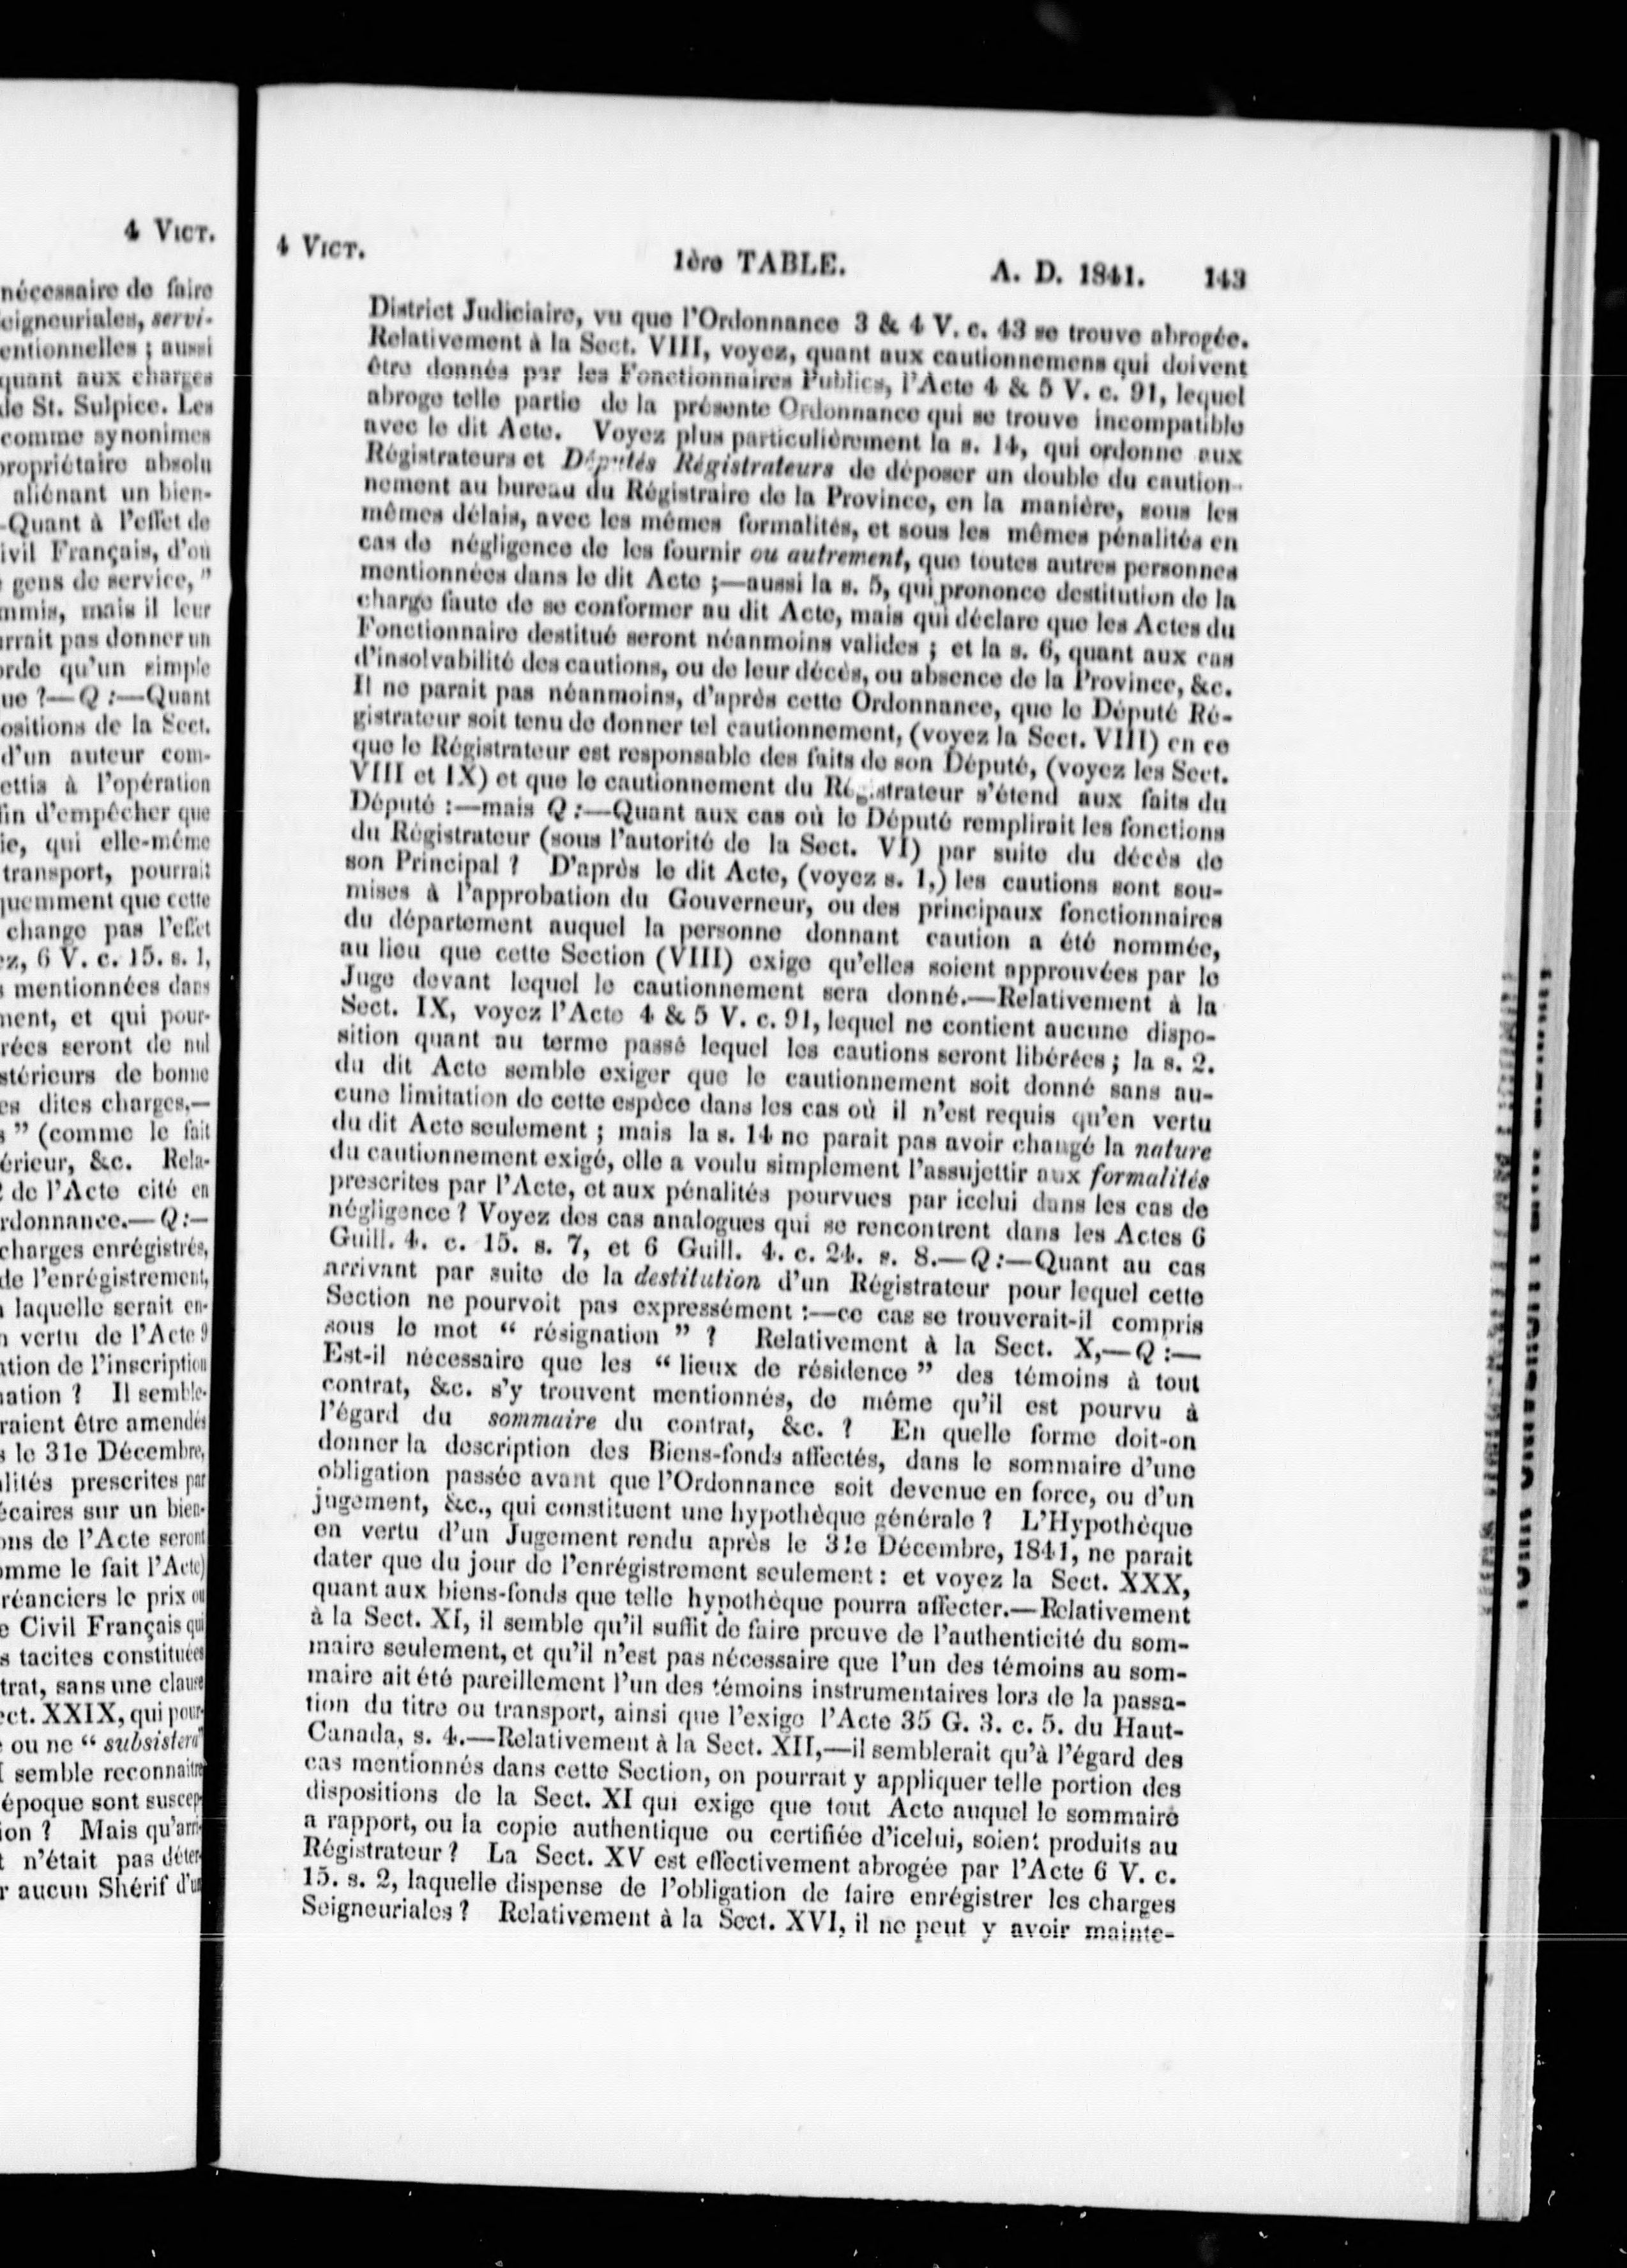 4 VICT.
nécessaire de faire
eigneuriales, servi-
entionnelles ; aussi
quant aux charges
de St. Sulpice. Les
comme synonimes
propriétaire absolu
aliénant un bien-
-Quant à l'effet de
ivil Français, d'où
gens de service,"
mmis, mais il leur
urrait pas donner un
orde qu'un simple
ue ?—Q :—Quant
ositions de la Sect.
d'un auteur com-
ettis à l'opération
fin d'empêcher que
ie, qui elle-même
transport, pourrait
quemment que cette
change pas l'effet
ez, 6 V. c. 15. s. 1,
s mentionnées dans
ment, et qui pour-
rées seront de nul
stérieurs de bonne
es dites charges.—
s" (comme le fait
érieur, &c. Rela-
de l'Acte cité en
rdonnance.—Q:—
charges enrégistrés,
de l'enrégistrement,
laquelle serait en-
n vertu de l'Acte 9
ation de l'inscription
nation ? Il semble-
raient être amendés
s le 31e Décembre,
alités prescrites par
écaires sur un bien-
ons de l'Acte seront
omme le fait l'Acte)
réanciers le prix ou
e Civil Français qui
s tacites constituées
trat, sans une clause
ect. XXIX, qui pour-
ou ne "subsistera"
semble reconnaitre
époque sont suscep-
ion ? Mais qu'arri-
t n'était pas déter-
r aucun Shérif d'un
4 VICT. 1ère TABLE. A. D. 1841. 143
District Judiciaire, vu que l'Ordonnance 3 & 4 V. c. 43 se trouve abrogée.
Relativement à la Sect. VIII, voyez, quant aux cautionnemens qui doivent
être donnés par les Fonctionnaires Publics, l'Acte 4 & 5 V. c. 91, lequel
abroge telle partie de la présente Ordonnance qui se trouve incompatible
avec le dit Acte. Voyez plus particulièrement la s. 14, qui ordonne aux
Régistrateurs et Députés Régistrateurs de déposer un double du caution-
nement au bureau du Régistraire de la Province, en la manière, sous les
mêmes délais, avec les mêmes formalités, et sous les mêmes pénalités en
cas de négligence de les fournir ou autrement, que toutes autres personnes
mentionnées dans le dit Acte ;—aussi la s. 5, qui prononce destitution de la
charge faute de se conformer au dit Acte, mais qui déclare que les Actes du
Fonctionnaire destitué seront néanmoins valides ; et la s. 6, quant aux cas
d'insolvabilité des cautions, ou de leur décès, ou absence de la Province, &c.
Il ne parait pas néanmoins, d'après cette Ordonnance, que le Député Ré-
gistrateur soit tenu de donner tel cautionnement, (voyez la Sect. VIII) en ce
que le Régistrateur est responsable des faits de son Député, (voyez les Sect.
VIII et IX) et que le cautionnement du Régistrateur s'étend aux faits du
Député :—mais Q :—Quant aux cas où le Député remplirait les fonctions
du Régistrateur (sous l'autorité de la Sect. VI) par suite du décès de
son Principal ? D'après le dit Acte, (voyez s. 1,) les cautions sont sou-
mises à l'approbation du Gouverneur, ou des principaux fonctionnaires
du département auquel la personne donnant caution a été nommée,
au lieu que cette Section (VIII) exige qu'elles soient approuvées par le
Juge devant lequel le cautionnement sera donné.—Relativement à la
Sect. IX, voyez l'Acte 4 & 5 V. c. 91, lequel ne contient aucune dispo-
sition quant au terme passé lequel les cautions seront libérées ; la s. 2.
du dit Acte semble exiger que le cautionnement soit donné sans au-
cune limitation de cette espèce dans les cas où il n'est requis qu'en vertu
du dit Acte seulement ; mais la s. 14 ne parait pas avoir changé la nature
du cautionnement exigé, elle a voulu simplement l'assujettir aux formalités
prescrites par l'Acte, et aux pénalités pourvues par icelui dans les cas de
négligence ? Voyez des cas analogues qui se rencontrent dans les Actes 6
Guill. 4. c. 15. s. 7, et 6 Guill. 4. c. 24. s. 8.—Q:—Quant au cas
arrivant par suite de la destitution d'un Régistrateur pour lequel cette
Section ne pourvoit pas expressément :—ce cas se trouverait-il compris
sous le mot " résignation " ? Relativement à la Sect. X,—Q :—
Est-il nécessaire que les " lieux de résidence " des témoins à tout
contrat, &c. s'y trouvent mentionnés, de même qu'il est pourvu à
l'égard du sommaire du contrat, &c. ? En quelle forme doit-on
donner la description des Biens-fonds affectés, dans le sommaire d'une
obligation passée avant que l'Ordonnance soit devenue en force, ou d'un
jugement, &c., qui constituent une hypothèque générale ? L'Hypothèque
en vertu d'un Jugement rendu après le 31e Décembre, 1841, ne parait
dater que du jour de l'enrégistrement seulement : et voyez la Sect. XXX,
quant aux biens-fonds que telle hypothèque pourra affecter.—Relativement
à la Sect. XI, il semble qu'il suffit de faire preuve de l'authenticité du som-
maire seulement, et qu'il n'est pas nécessaire que l'un des témoins au som-
maire ait été pareillement l'un des témoins instrumentaires lors de la passa-
tion du titre ou transport, ainsi que l'exige l'Acte 35 G. 3. c. 5. du Haut-
Canada, s. 4.—Relativement à la Sect. XII,—il semblerait qu'à l'égard des
cas mentionnés dans cette Section, on pourrait y appliquer telle portion des
dispositions de la Sect. XI qui exige que tout Acte auquel le sommaire
a rapport, ou la copie authentique ou certifiée d'icelui, soient produits au
Régistrateur ? La Sect. XV est effectivement abrogée par l'Acte 6 V. c.
15. s. 2, laquelle dispense de l'obligation de faire enrégistrer les charges
Seigneuriales ? Relativement à la Sect. XVI, il ne peut y avoir mainte-